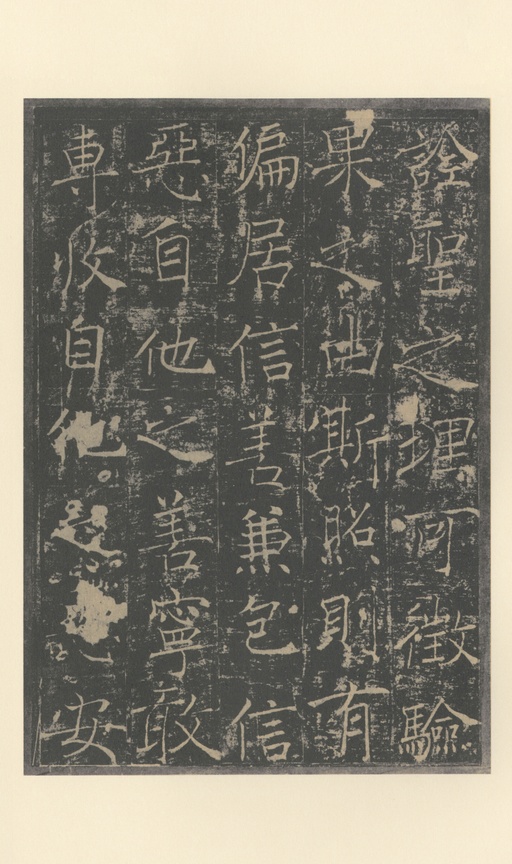 詮聖之理可徵驗
果之由斯昭則有
偏居信善兼包信
惡自他之善寧敢
專攻自他
安